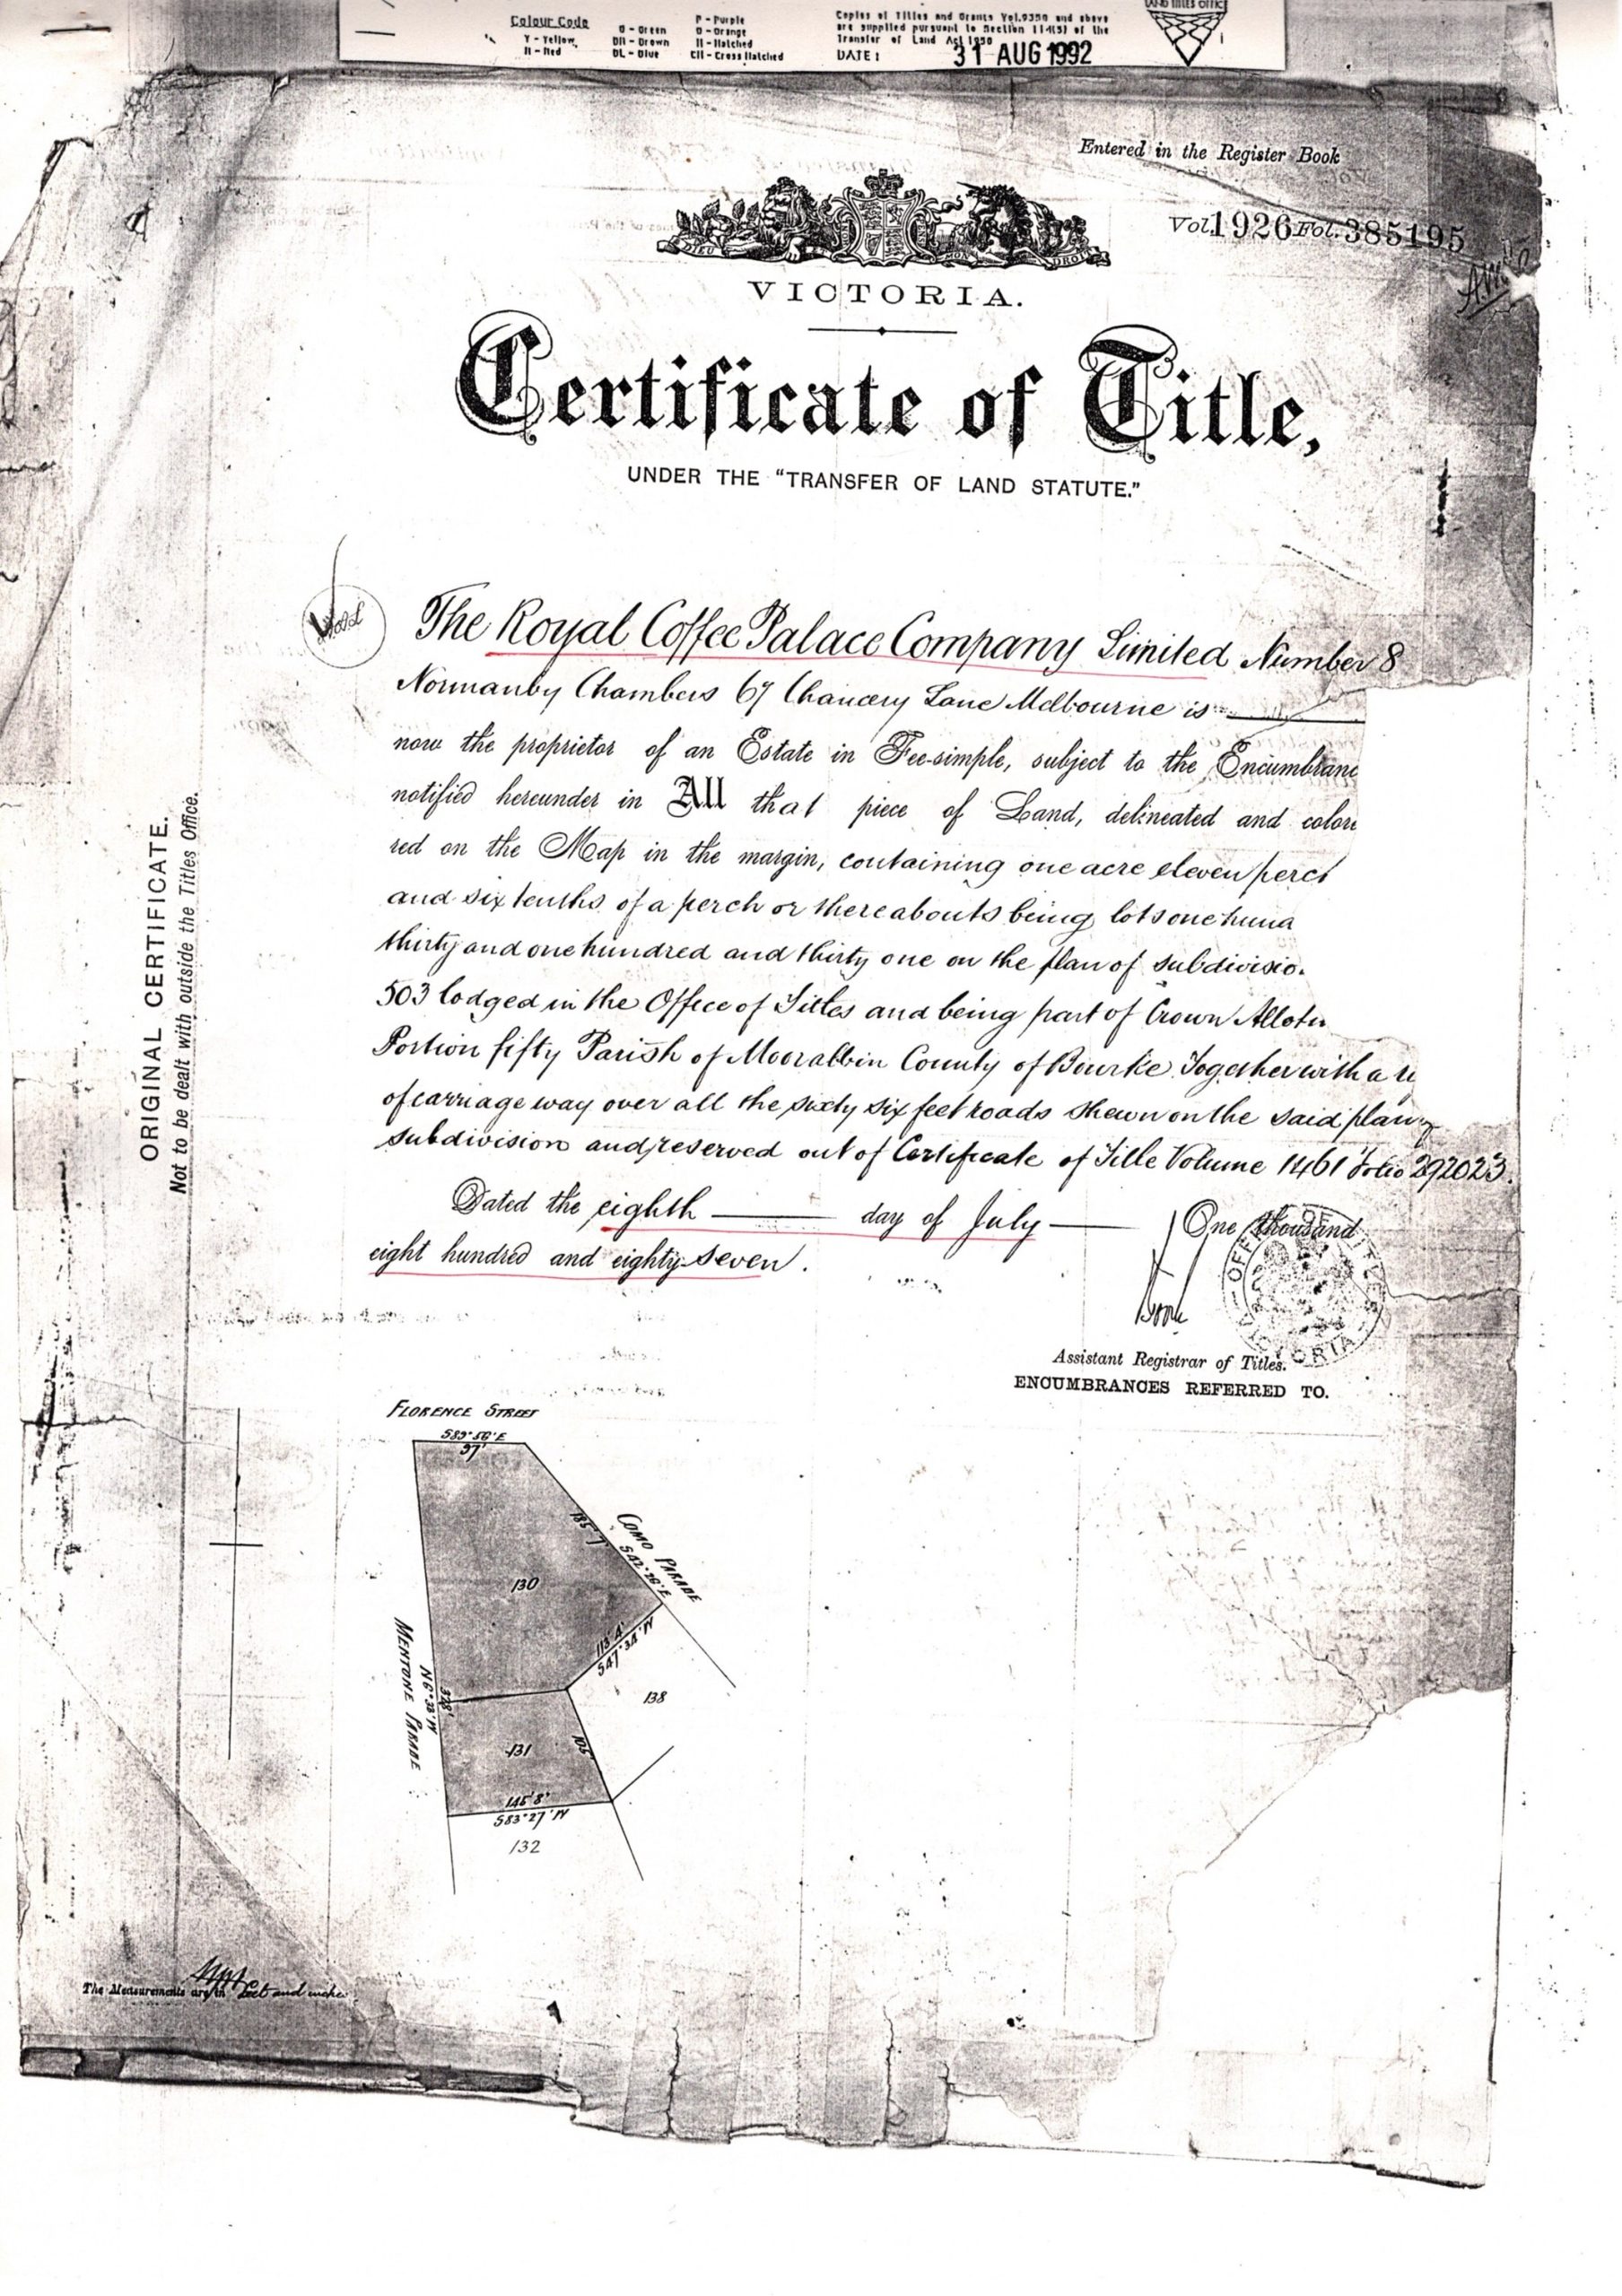 Colour Code
Y - Yellow
R - Red
G - Green
BR - Brown
BL - Blue
P - Purple
O - Orange
H - Hatched
CH - Cross Hatched
Copies of Titles and Grants Vol.9350 and above
are supplied pursuant to Section 114(5) of the
Transfer of Land Act 1958
DATE: 31 AUG 1992
LAND TITLES OFFIC
Entered in the Register Book
Vol. 1926 Fol. 385195
DIEU
DROIT
VICTORIA.
Certificate of Title,
UNDER THE "TRANSFER OF LAND STATUTE."
The Royal Coffee Palace Company Limited Number 8
Normanby Chambers 67 Chancery Lane Melbourne is
now the proprietor of an Estate in Fee-simple, subject to the Encumbranc
notified hereunder in All that piece of Land, delineated and colore
red on the Map in the margin, containing one acre eleven perch
and six tenths of a perch or thereabouts being lots one hund
thirty and one hundred and thirty one on the plan of subdivisio
503 lodged in the Office of Titles and being part of Crown Allotm
Portion fifty Parish of Moorabbin County of Bourke Together with a ri
of carriage way over all the sixty six feet roads shewn on the said plan
subdivision and reserved out of Certificate of Title Volume 1461 Folio 292023.
Dated the eighth day of July One thousand
eight hundred and eighty-seven.
Assistant Registrar of Titles.
ENCUMBRANCES REFERRED TO.
ORIGINAL CERTIFICATE.
Not to be dealt with outside the Titles Office.
FLORENCE STREET
S89°56'E
97'
185'7
COMO PARADE
S42°28'E
130
113'4"
S47°34'W
MENTONE PARADE
N6°38'W
328'
138
131
105'
145'8"
S83°27'W
132
The Measurements are in feet and inches